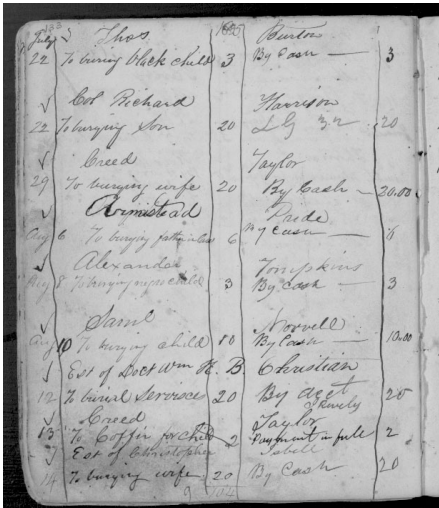 July Thos Burton
22 To buring black child 3 By Cash 3
Col Richard Harrison
22 To burying Son 20 20
Creed Taylor
29 To burying wife 20 By Cash 20.00
Armistead Pride
Aug 6 To burying father in law 6 By cash 6
Alexander Tompkins
Aug 8 To burying negro child 3 By Cash 3
Saml Norvell
Aug 10 To burying child 10 By Cash 10.00
Est of Doct Wm H. B. Christian
12 To burial Services 20 By Acct 20
Creed Taylor
13 To Coffin for child 2 Payment in full 2
Est of Christopher Isbell
14 To burying wife 20 By Cash 20